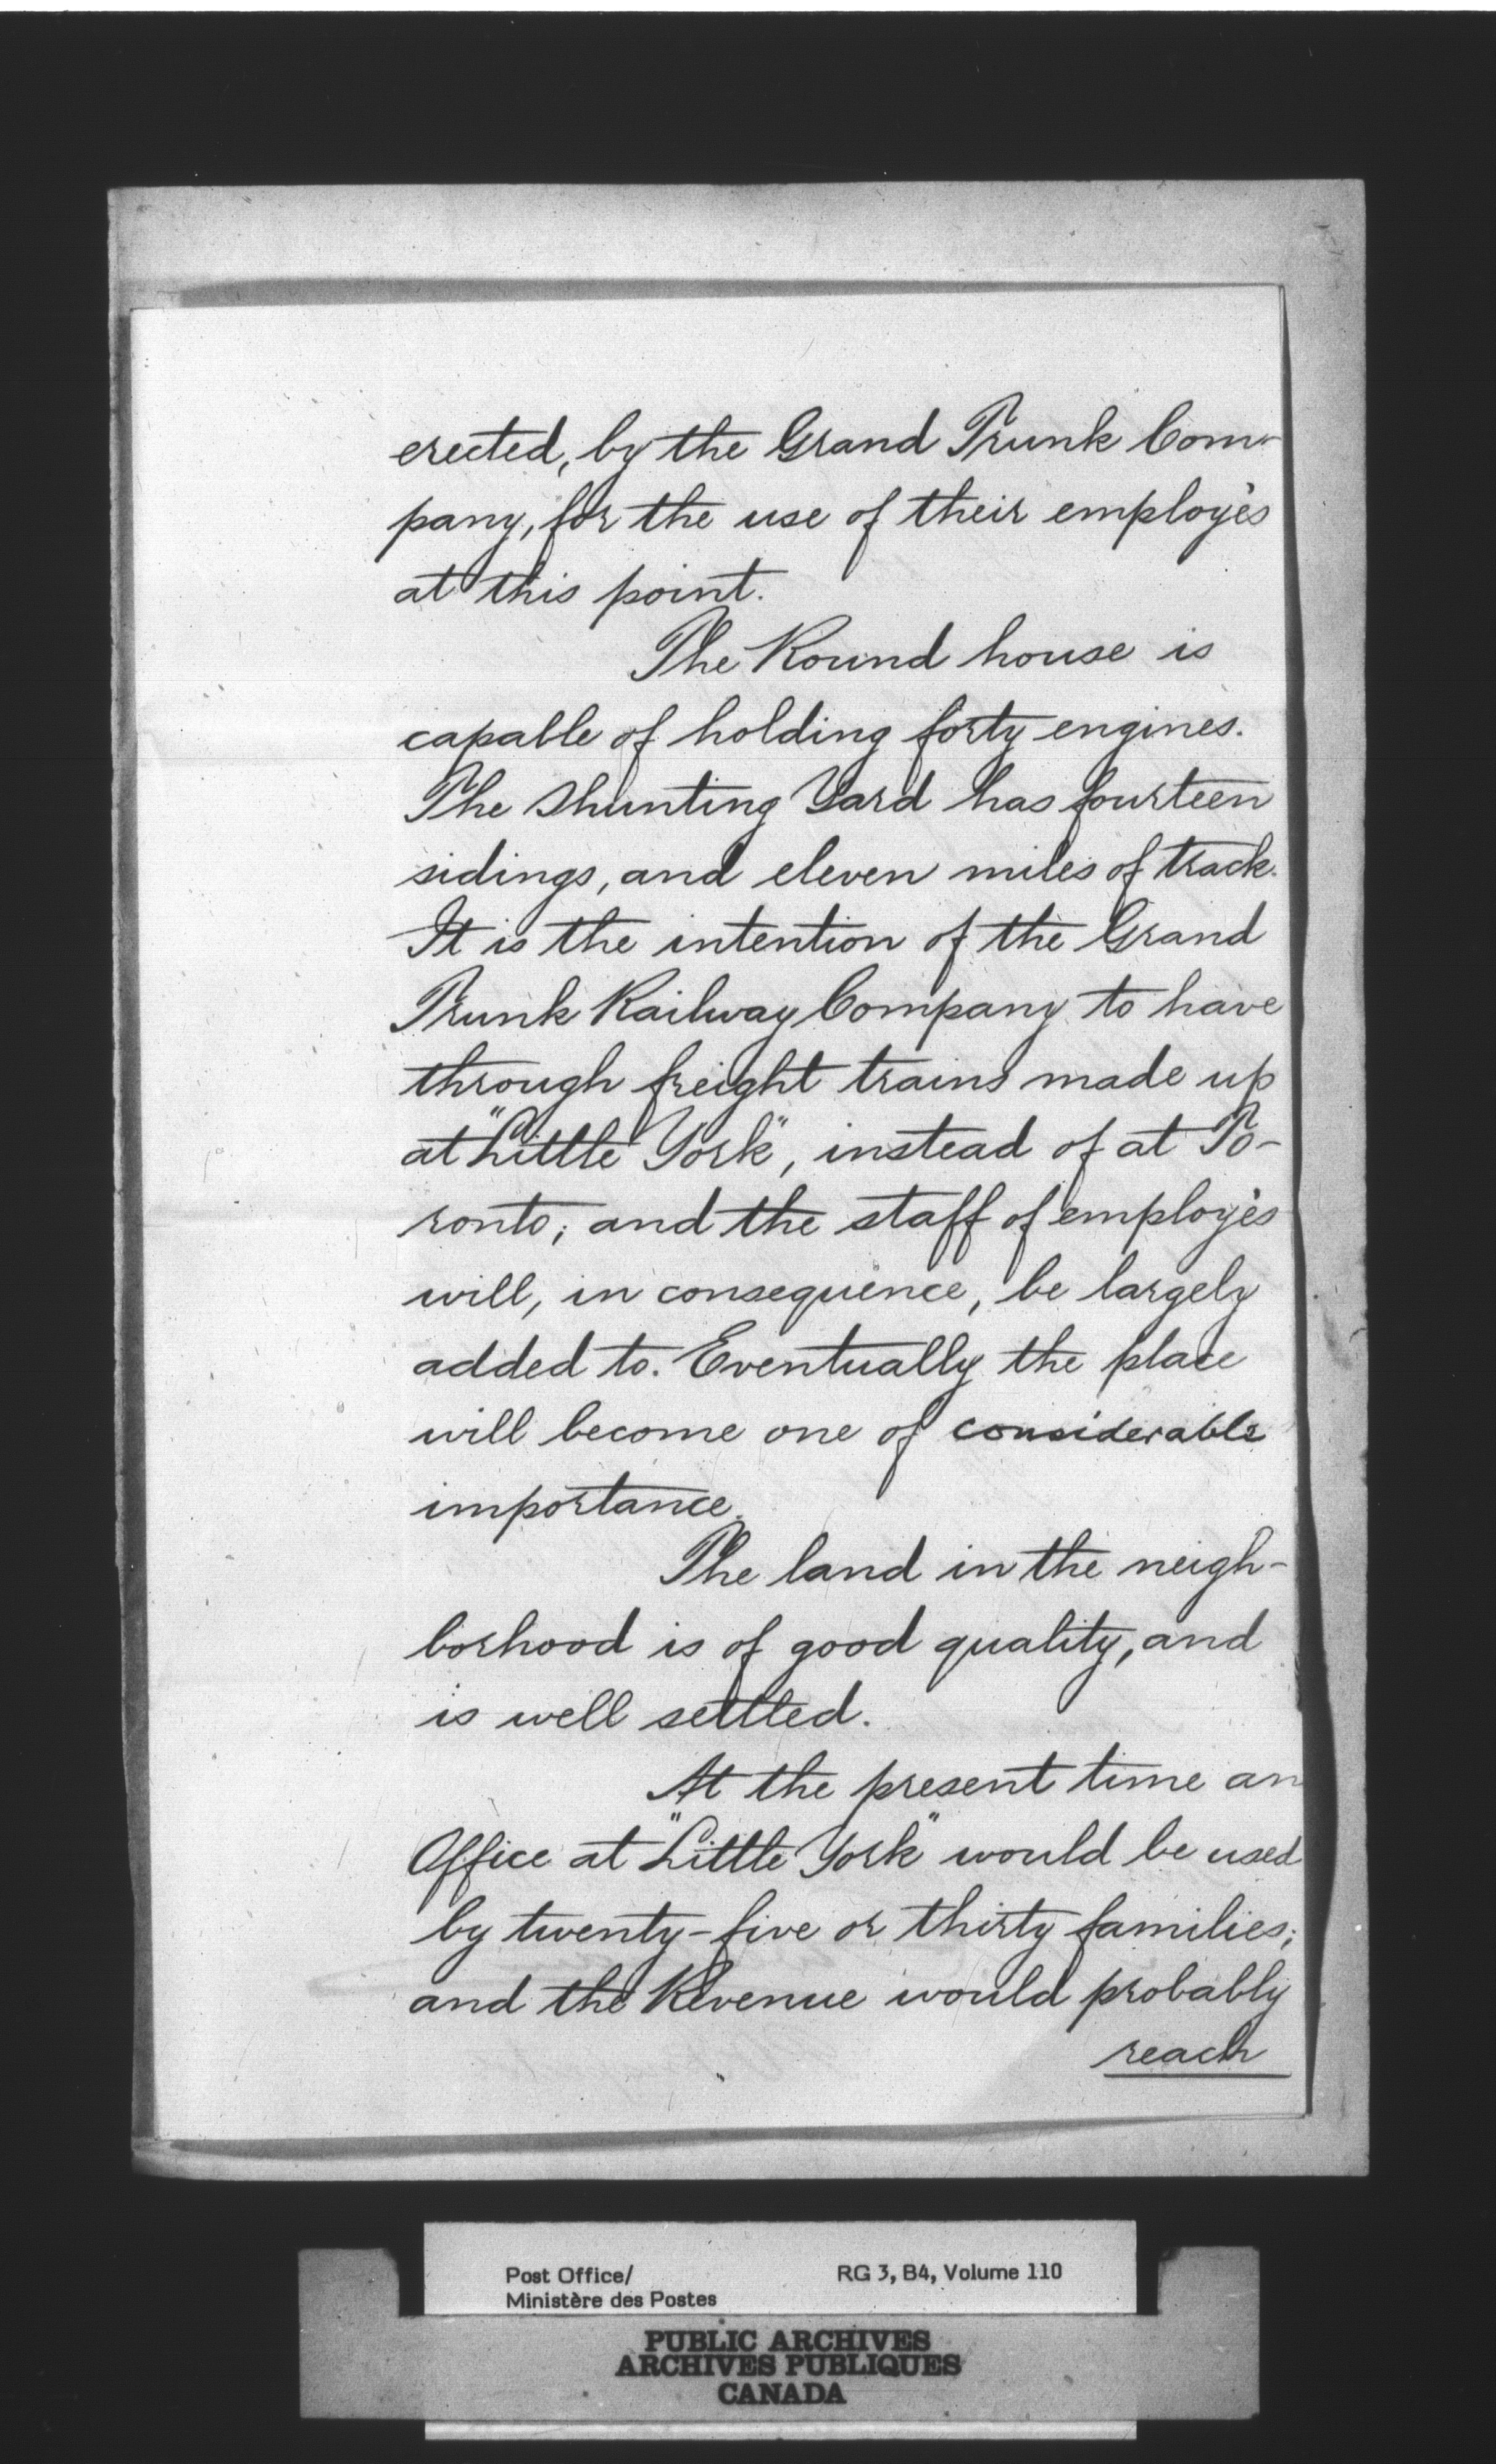 erected, by the Grand Trunk Com-
pany, for the use of their employés
at this point.
The Round house is
capable of holding forty engines.
The Shunting Yard has fourteen
sidings, and eleven miles of track.
It is the intention of the Grand
Trunk Railway Company to have
through freight trains made up
at "Little York", instead of at To-
ronto; and the staff of employés
will, in consequence, be largely
added to. Eventually the place
will become one of considerable
importance.
The land in the neigh-
borhood is of good quality, and
is well settled.
At the present time an
Office at "Little York" would be used
by twenty-five or thirty families;
and the Revenue would probably
reach
Post Office/ RG 3, B4, Volume 110
Ministère des Postes
PUBLIC ARCHIVES
ARCHIVES PUBLIQUES
CANADA